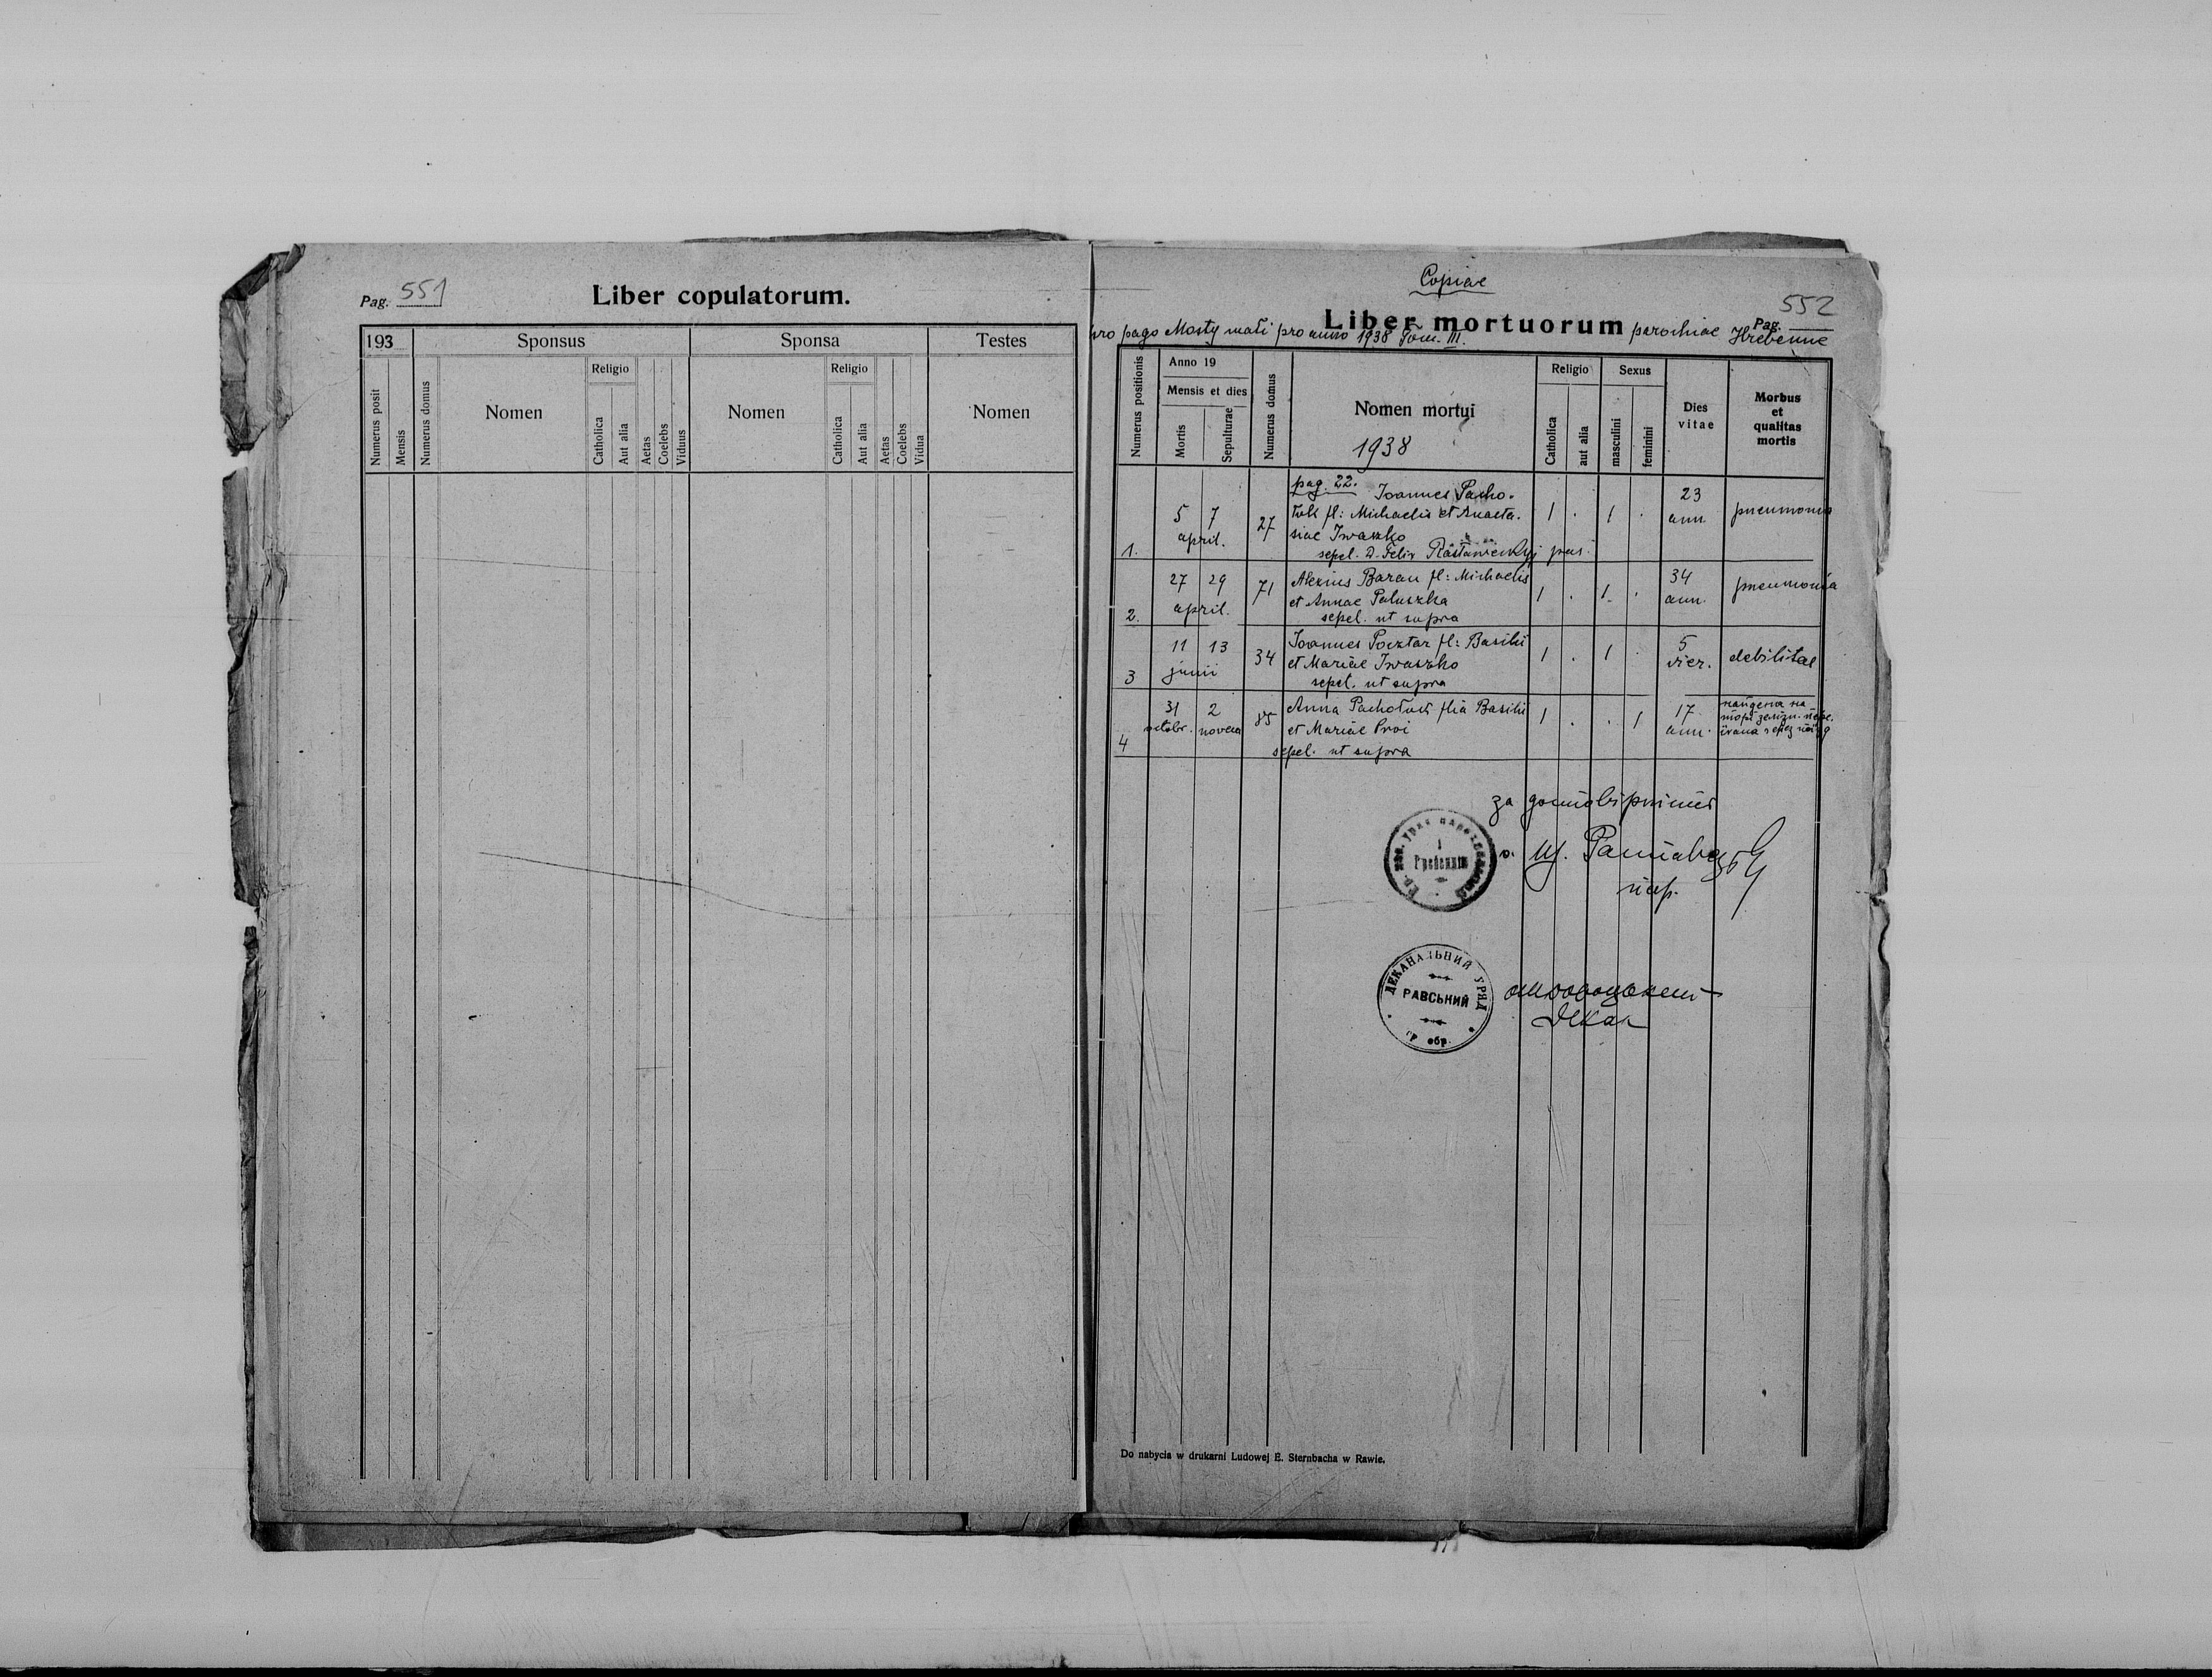 Pag. 551
Liber copulatorum.
193
Sponsus
Sponsa
Testes
Numerus posit
Mensis
Numerus domus
Nomen
Religio
Catholica
Aut alia
Aetas
Coelebs
Viduus
Nomen
Religio
Catholica
Aut alia
Aetas
Coelebs
Vidua
Nomen
Copiae
552
Liber mortuorum parochiae Hrebenne
Pag.
pro pago Mosty mali pro anno 1938 Tom. III.
Numerus positionis
Anno 19
Mensis et dies
Mortis
Sepulturae
Numerus domus
Nomen mortui
1938
Religio
Catholica
aut alia
Sexus
masculini
feminini
Dies
vitae
Morbus
et
qualitas
mortis
pag. 22.
1. 5 7 april. 27 Ioannes Pacho-
fil: Michaelis et Anasta-
siae Iwaszko
sepel. D. Felix
1 . 1 . 23 ann. pneumonia
2. 27 29 april. 71 Alexius Baran fil: Michaelis
et Annae Paluszka
sepel. ut supra
1 . 1 . 34 ann. pneumonia
3 11 13 junii 34 Ioannes Pocztar fil: Basilii
et Mariae Iwaszko
sepel. ut supra
1 . 1 . 5 debilitas
4 31 octobr. 2 novem 85 Anna filia Basilii
et Mariae
sepel. ut supra
1 . . 1 17 ann. найдена на
за
Гребенним
о. Щ.
пар.
ДЕКАНАЛЬНИЙ УРЯД
РАВСЬКИЙ
гр обр.
декан
Do nabycia w drukarni Ludowej E. Sternbacha w Rawie.